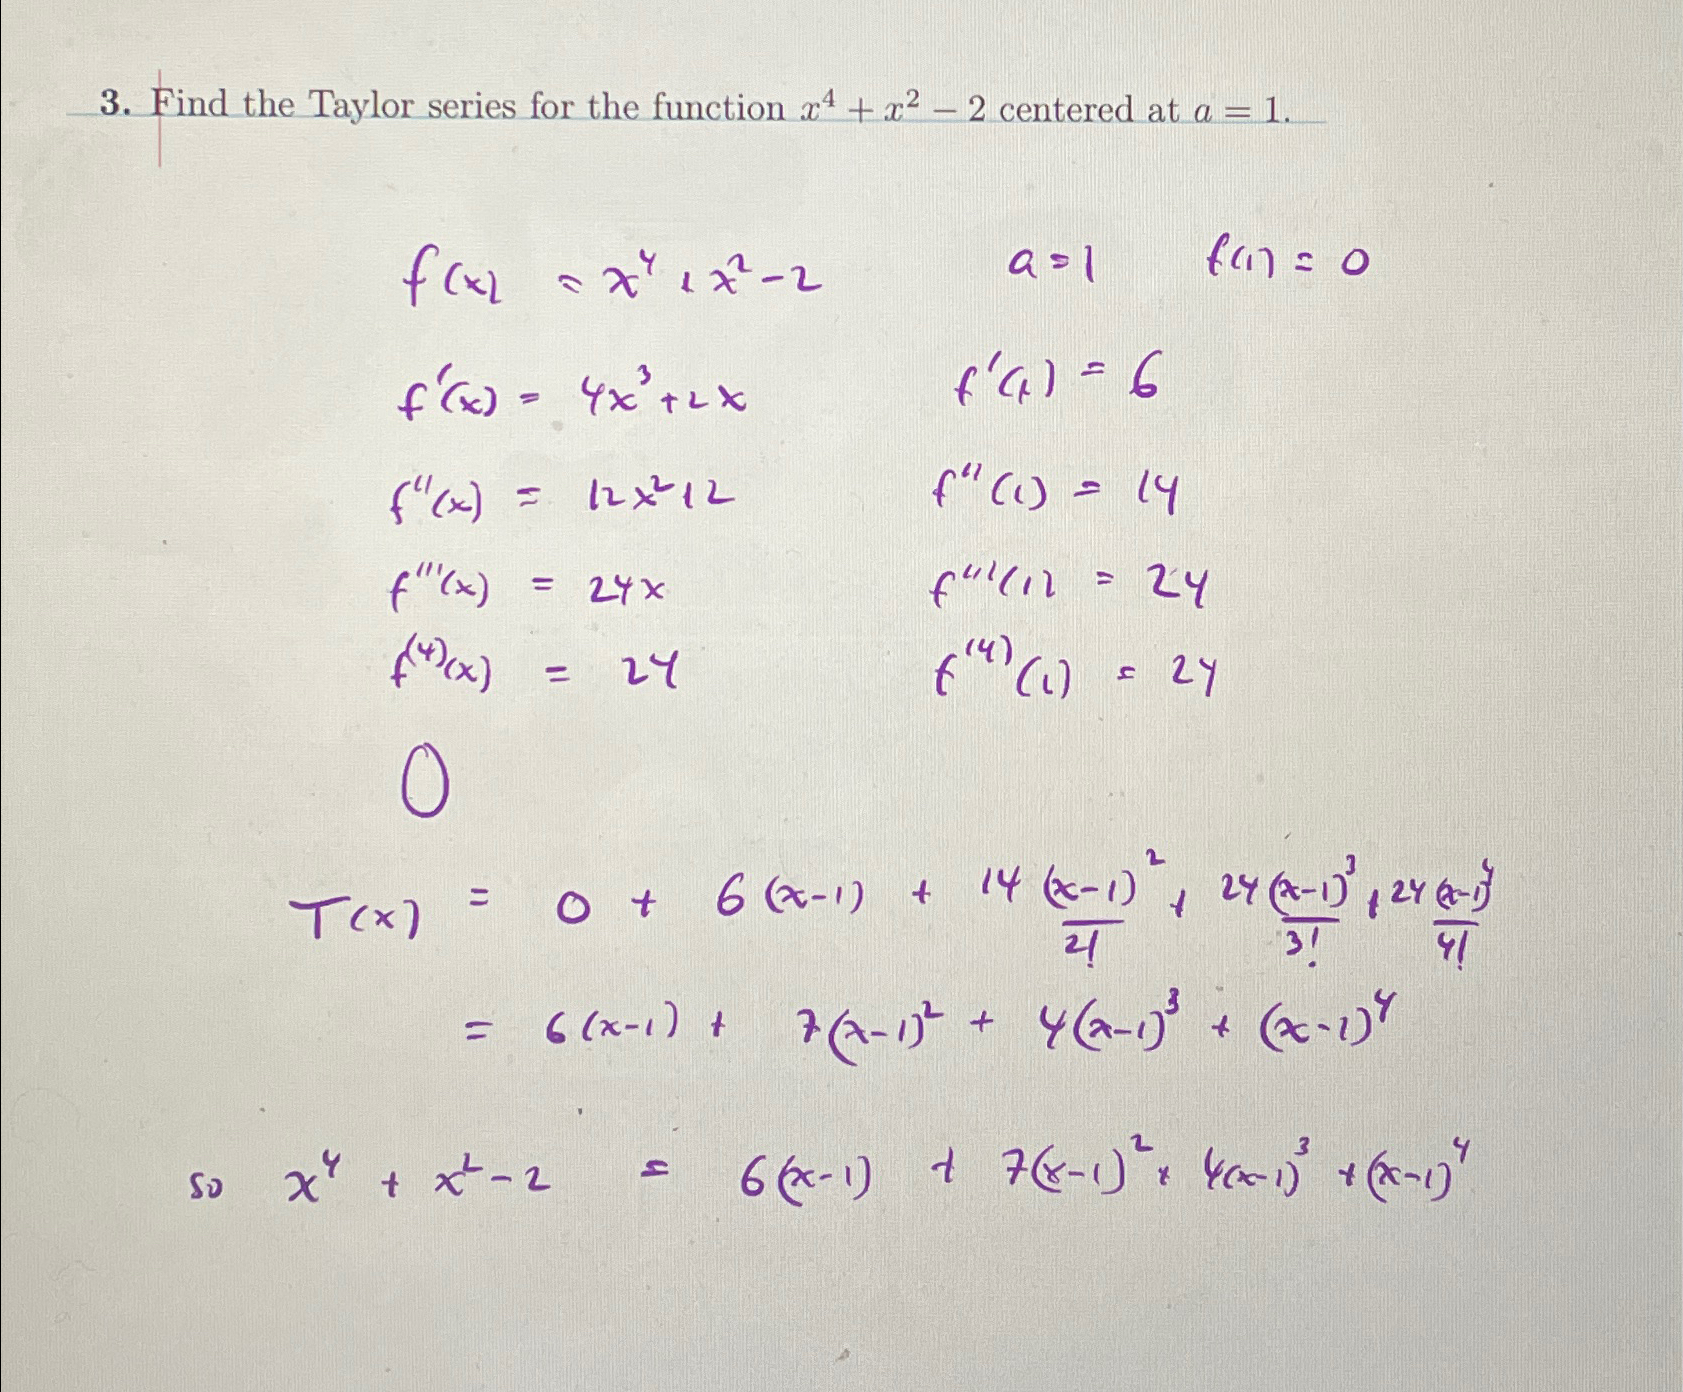 3. Find the Taylor series for the function x⁴ + x² − 2 centered at a = 1.
f(x) = x⁴ + x² − 2 a = 1 f(1) = 0
f'(x) = 4x³ + 2x f'(1) = 6
f''(x) = 12x² + 2 f''(1) = 14
f'''(x) = 24x f'''(1) = 24
f⁽⁴⁾(x) = 24 f⁽⁴⁾(1) = 24
0
T(x) = 0 + 6(x−1) + 14 (x−1)²/2! + 24 (x−1)³/3! + 24 (x−1)⁴/4!
= 6(x−1) + 7(x−1)² + 4(x−1)³ + (x−1)⁴
so x⁴ + x² − 2 = 6(x−1) + 7(x−1)² + 4(x−1)³ + (x−1)⁴